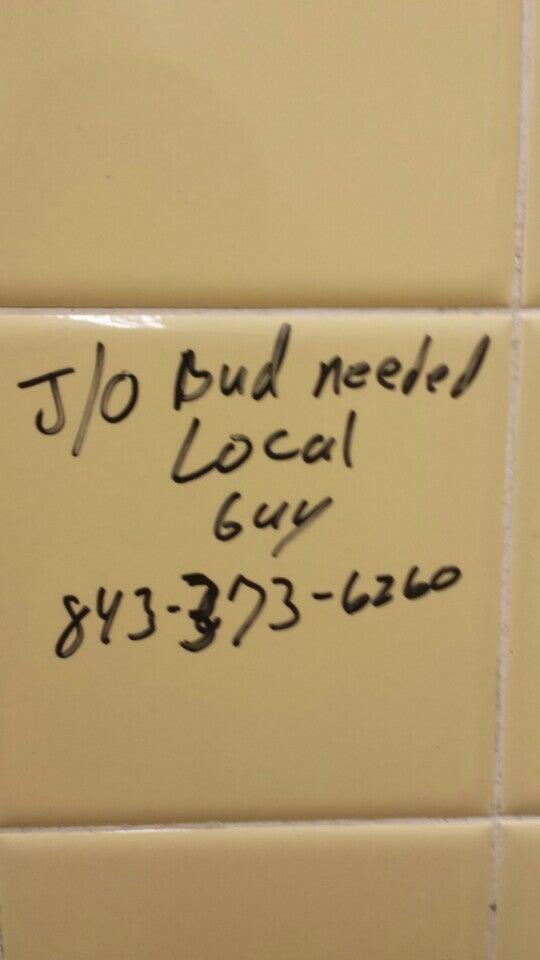 J/O Bud needed
Local
Guy
843-373-6260